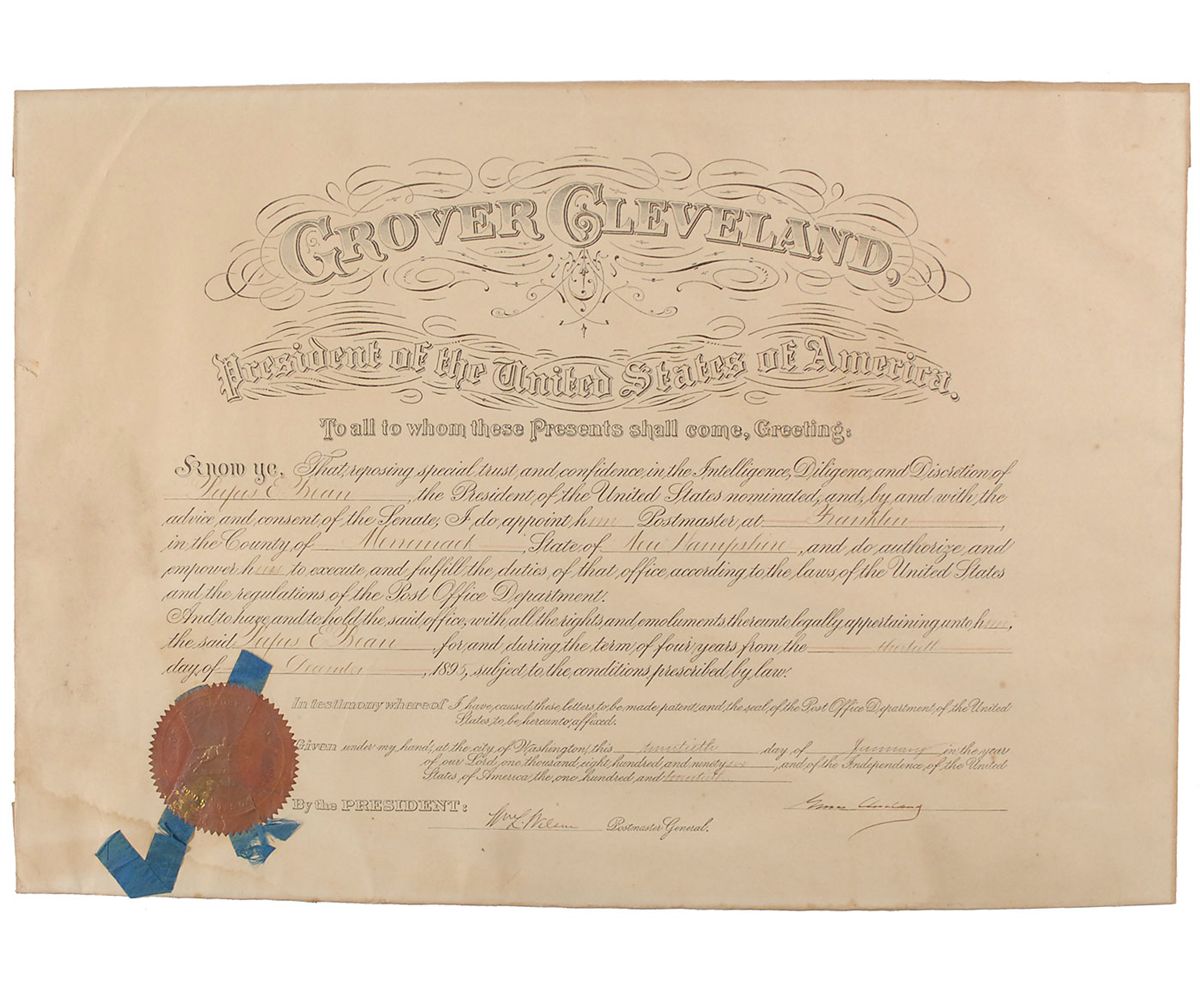 GROVER CLEVELAND,
President of the United States of America.
To all to whom these Presents shall come, Greeting:
Know ye, That, reposing special trust and confidence in the Intelligence, Diligence, and Discretion of
Rufus E. Bean, the President of the United States nominated, and, by and with the
advice and consent of the Senate, I do appoint him Postmaster at Franklin,
in the County of Merrimack, State of New Hampshire, and do authorize and
empower him to execute and fulfill the duties of that office according to the laws of the United States
and the regulations of the Post Office Department.
And to have and to hold the said office, with all the rights and emoluments thereunto legally appertaining unto him,
the said Rufus E. Bean, for and during the term of four years from the
day of December, 1895, subject to the conditions prescribed by law.
In testimony whereof I have caused these letters to be made patent, and the seal of the Post Office Department of the United
States to be hereunto affixed.
Given under my hand, at the city of Washington, this twentieth day of January in the year
of our Lord one thousand eight hundred and ninety six, and of the Independence of the United
States of America the one hundred and twentieth.
By the PRESIDENT:
Grover Cleveland
Wm L. Wilson Postmaster General.